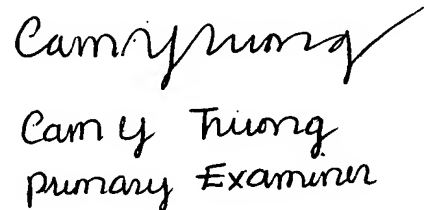 CamYTruong
Cam Y Truong
Primary Examiner